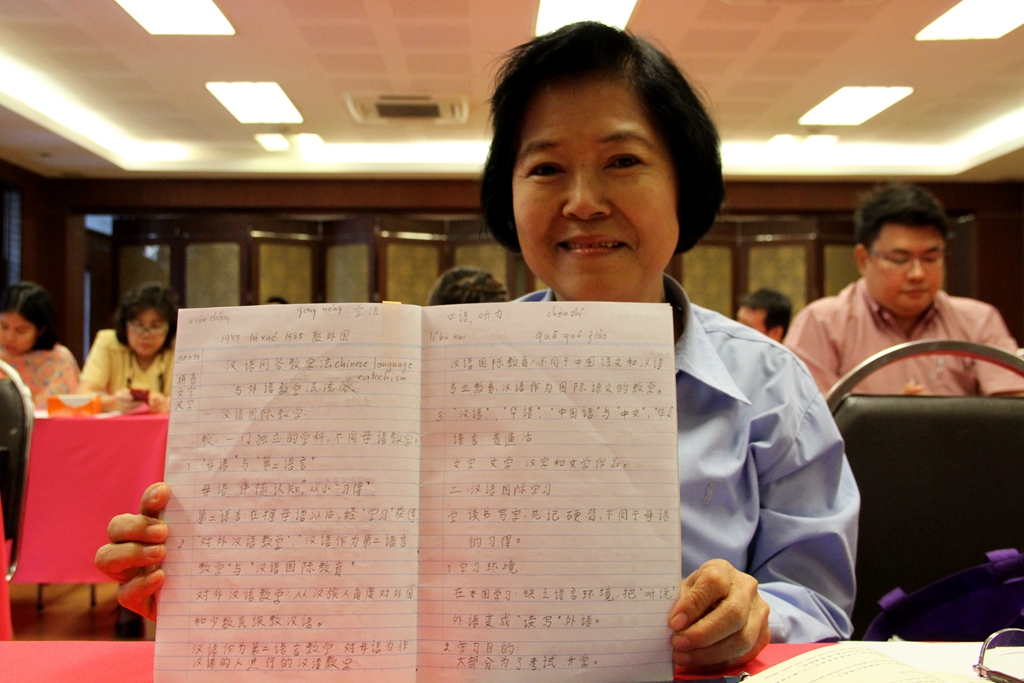 gōng néng 字法
1977 1985 教外国
汉语问答教学法 chinese language
catechism
与外语教学法流派
一 汉语国际教学:
教: 一门独立的学科, 不同母语教学。
1. "母语"与"第二语言"
母语: 伴随认知, 从小"习得"
第二语言: 在握母语以后, 经"学习"获得
2. "对外汉语教学", "汉语作为第二语言
教学"与"汉语国际教育"
对外汉语教学: 从汉族人角度对外国
和少数民族教汉语。
汉语作为第二语言教学: 对母语为非
汉语的人进行的汉语教学
口语, 听力
汉语国际教育: 不同于中国语文和汉语
汉语作为国际语文的教学。
3. "汉语", "华语", "中国语"与"中文",
语言: 普通话
文字 文学: 汉字和文学作品。
二. 汉语国际学习
学: 读书写字, 死记硬背, 不同于母语
的习得。
1. 学习环境
在本国学习 缺乏语言环境, 把"听说"
外语变成"读写"外语。
2. 学习目的:
大部分为了考试 升学。